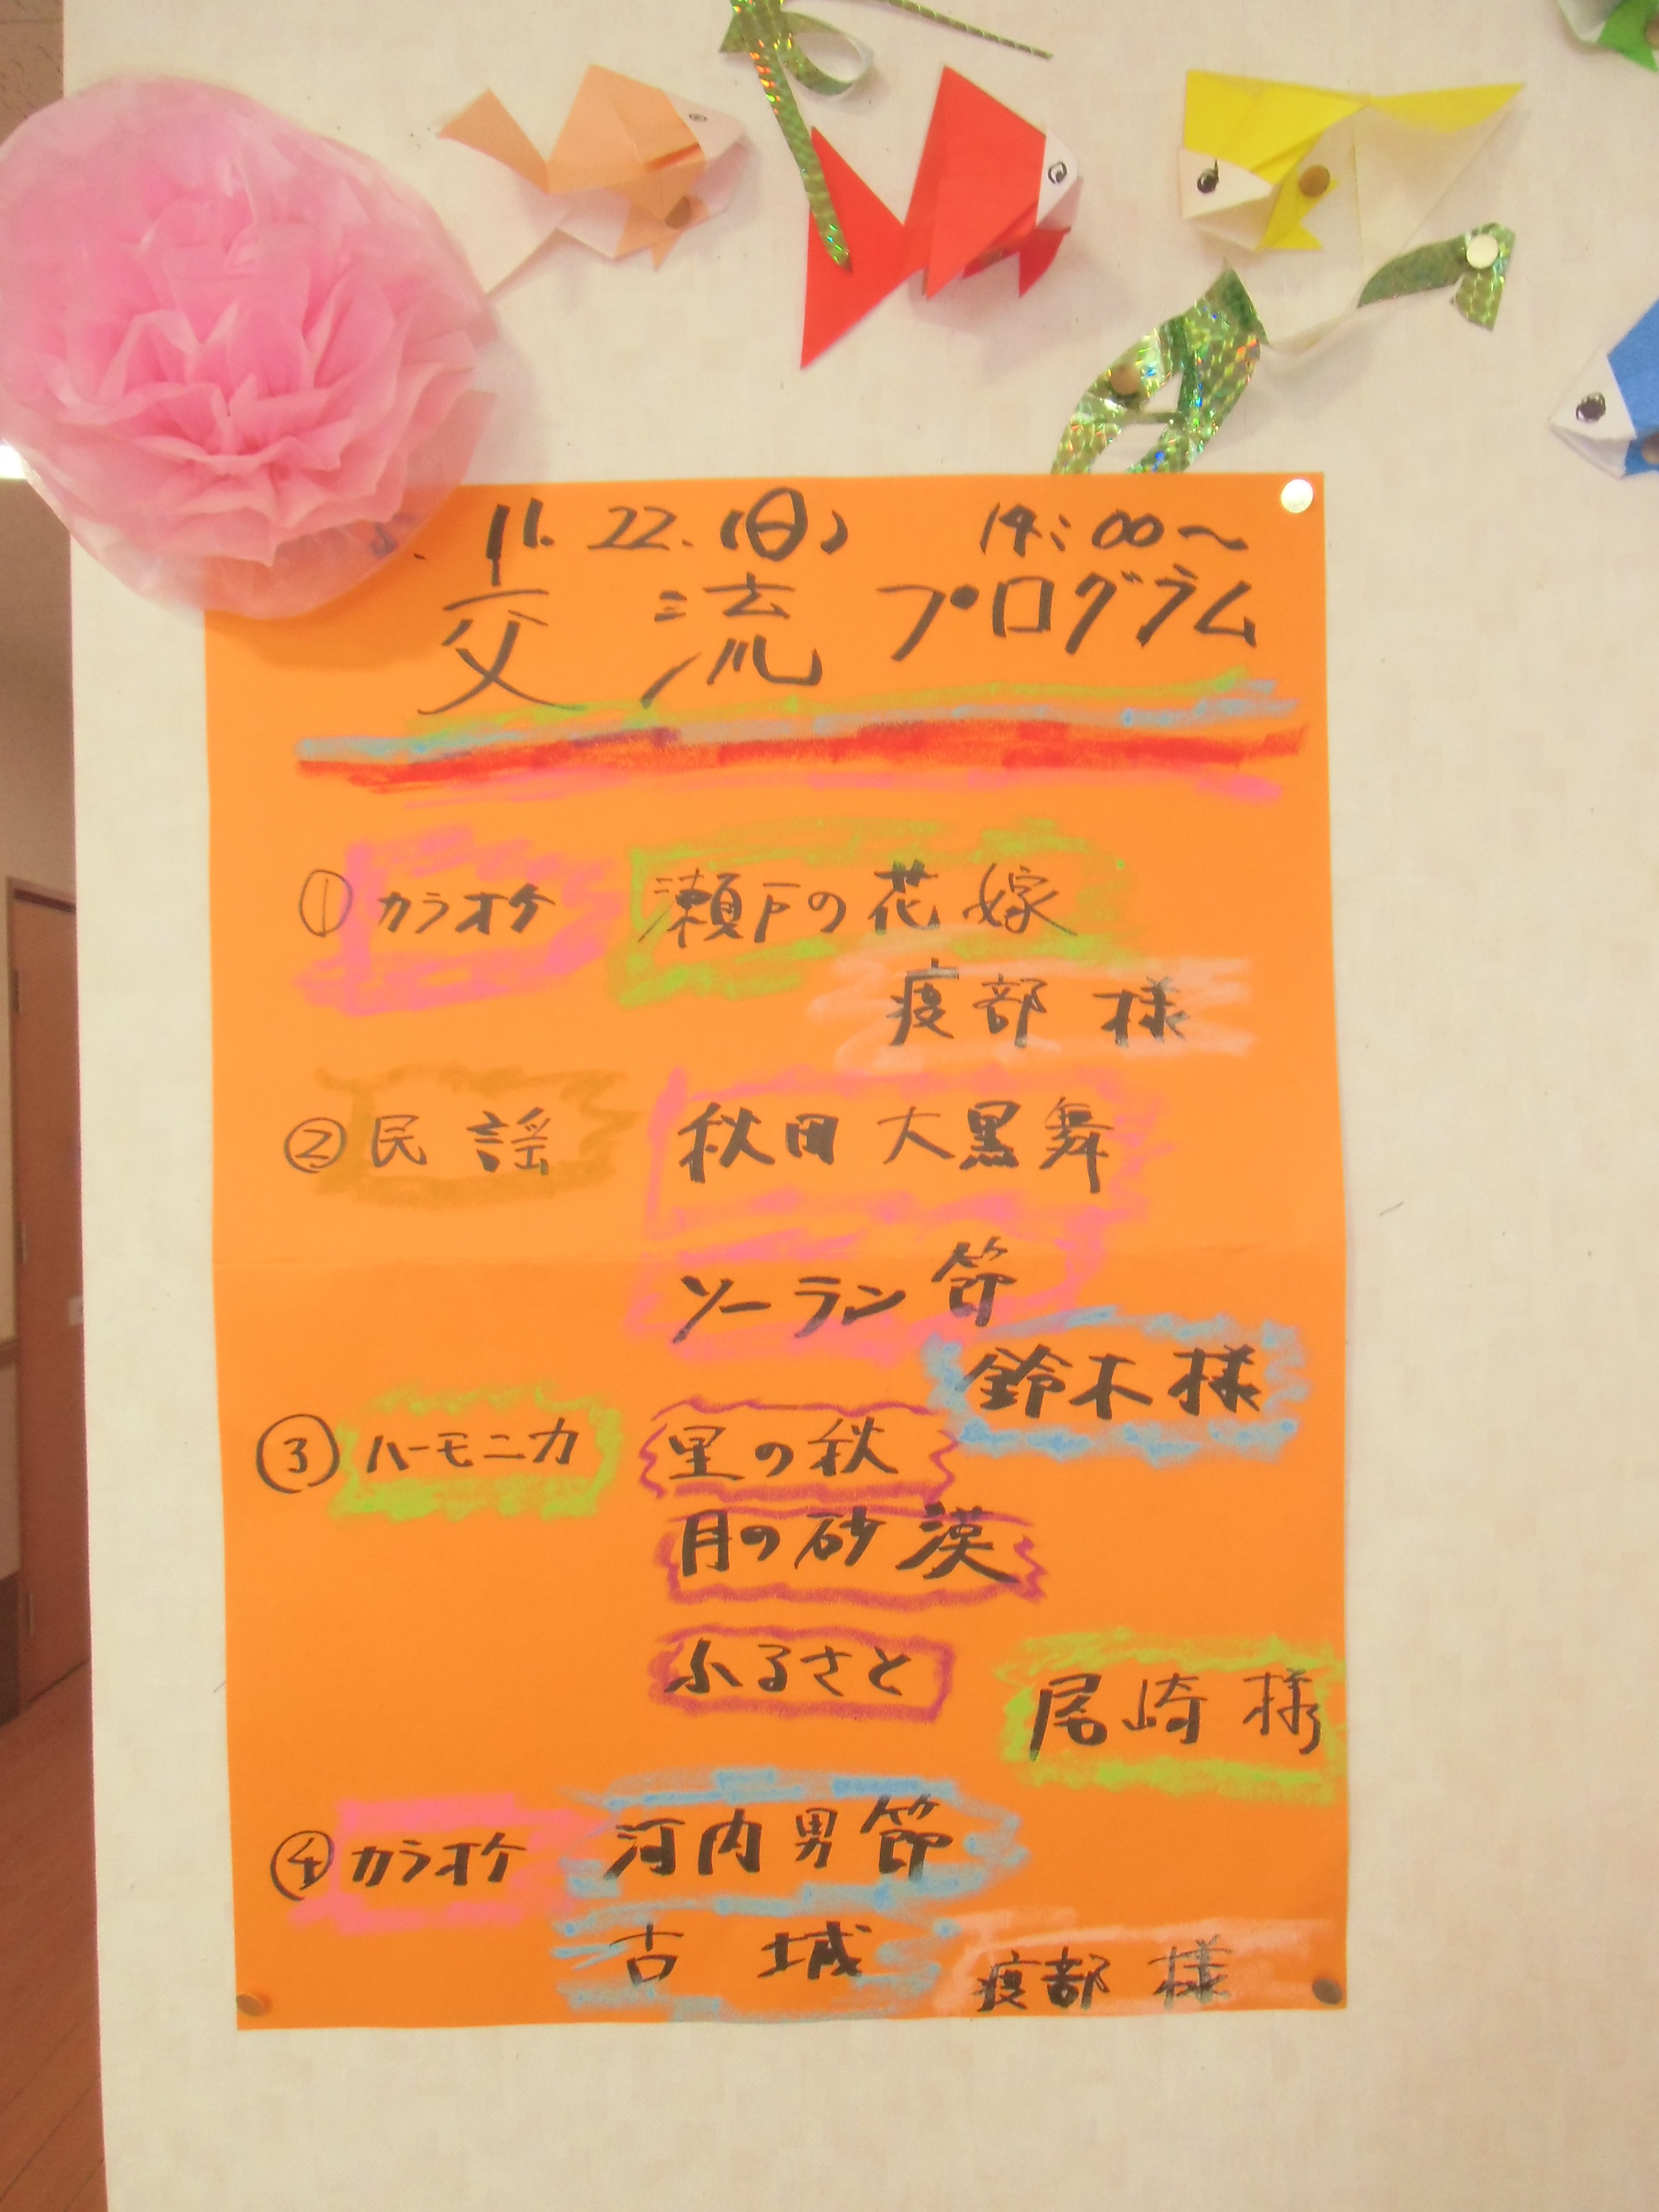 11.22.(日) 14:00〜
交流プログラム
① カラオケ 瀬戸の花嫁
疫部 様
② 民謡 秋田大黒舞
ソーラン節
鈴木様
③ ハーモニカ 里の秋
月の砂漠
ふるさと
尾崎様
④ カラオケ 河内男節
古城
疫部 様